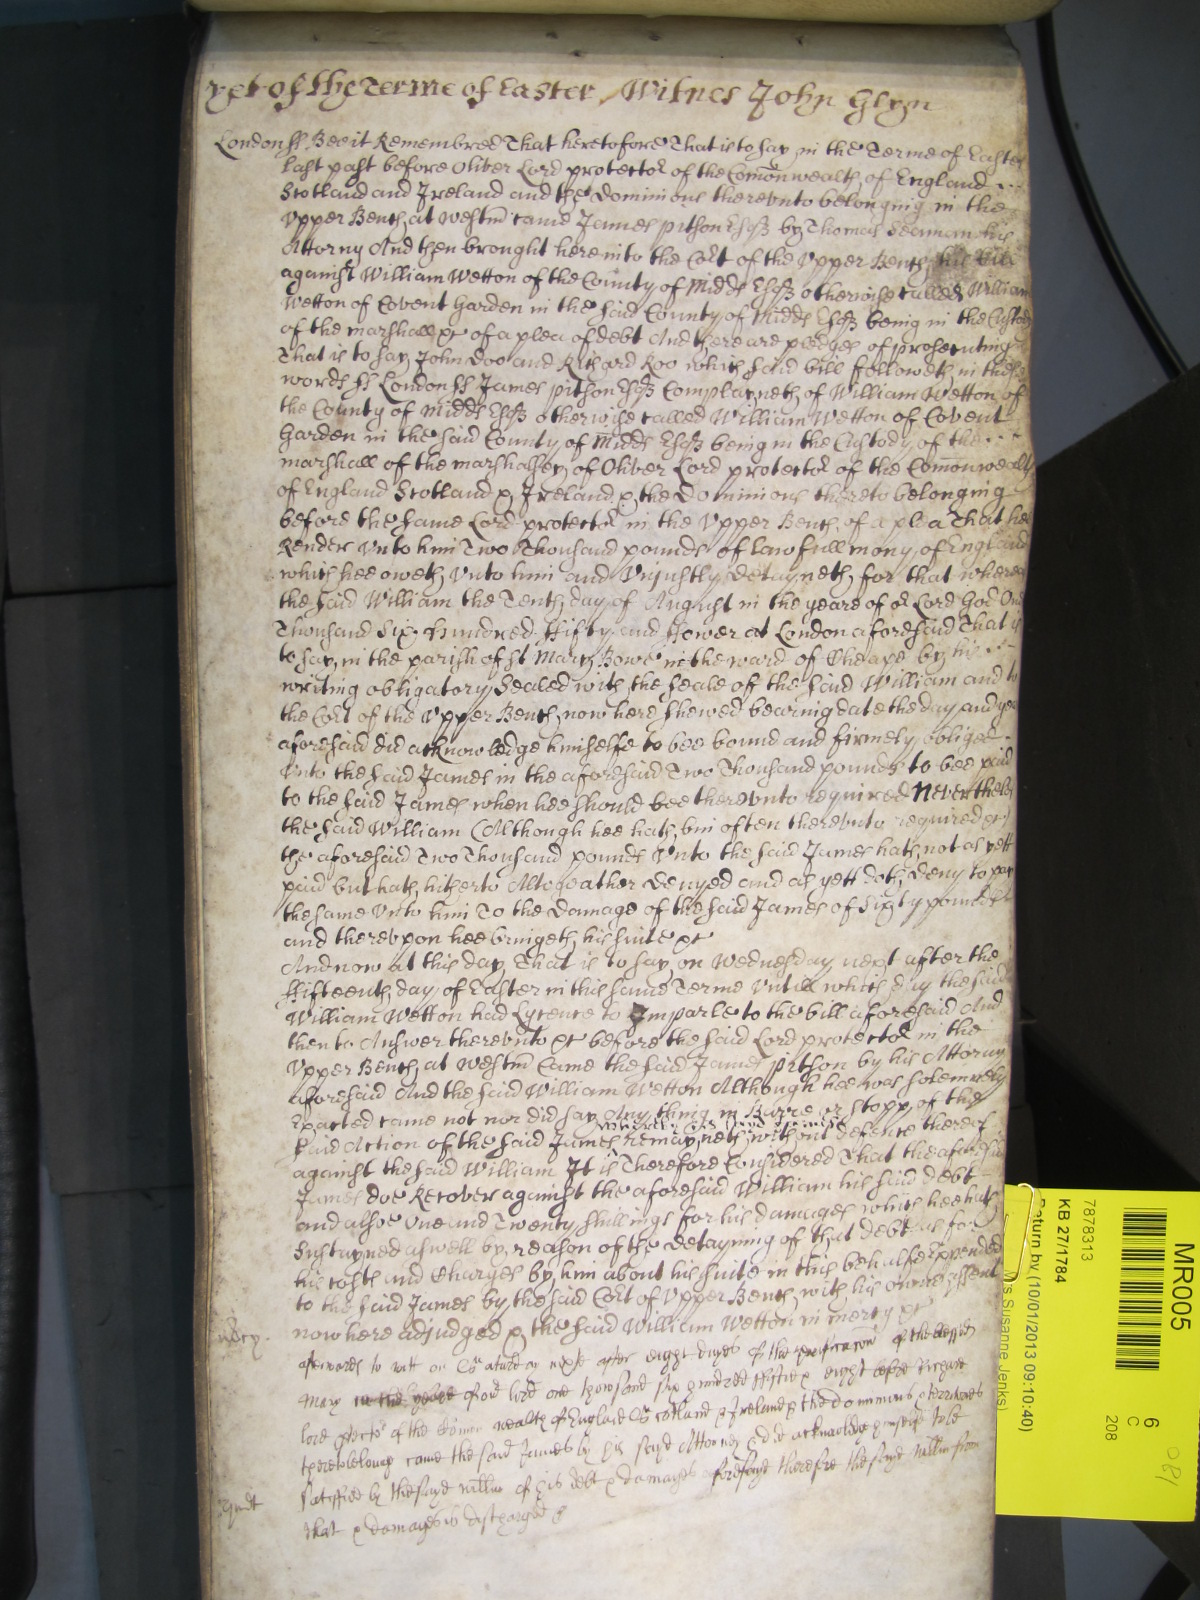 yet of the Terme of Easter Witnes John Glyn
London ss Bee it Remembred That heretofore That is to say in the Terme of Easter
last past before Oliver Lord protector of the Comonwealth of England
Scotland and Ireland and the Dominions therevnto belonging in the
Vpper Bench at Westm̃ came James pitson Esqꝫ by Thomas Seaman his
Attorny And then brought here into the Co̅rt of the Vpper Bench his bill
against William Wetton of the County of Midds Esqꝫ otherwise called William
Wetton of Covent Garden in the said County of Midds Esqꝫ being in the Custody
of the marshall &c of a plea of debt And there are pledges of prosecuting
That is to say John Doo and Richard Roo which said bill followeth in these
words ss London ss James pitson Esqꝫ Complayneth of William Wetton of
the County of Midds Esqꝫ otherwise called William Wetton of Covent
Garden in the said County of Midds Esqꝫ being in the Custody of the
marshall of the marshalsey of Oliver Lord protector of the Comonwealth
of England Scotland & Ireland & the Dominions thereto belonging
before the same Lord protector in the Vpper Bench of a plea That hee
Render Vnto him Two Thousand pounds of lawfull mony of England
which hee oweth Vnto him and Vniustly detayneth for that whereas
the said William the Tenth day of August in the yeare of or Lord God One
Thousand Six Hundred Fifty and Fower at London aforesaid That is
to say in the parish of St Mary Bowe in the ward of Cheape by his
writing obligatory Sealed with the seale of the said William and to
the Co̅rt of the Vpper Bench now here shewed bearing date the day and yeare
aforesaid did acknowledge himselfe to bee bound and firmely obliged
Vnto the said James in the aforesaid Two Thousand pounds to bee paid
to the said James when hee should bee therevnto required Neverthelesse
the said William (Although hee hath bin often therevnto required &c)
the aforesaid Two Thousand pounds Vnto the said James hath not as yett
paid but hath hitherto Altogeather Denyed and as yett doth deny to pay
the same Vnto him To the Damage of the said James of Sixty pounds
and therevpon hee bringeth his suite &c
And now at this day That is to say on Wednesday next after the
Fifteenth day of Easter in this same Terme Vntill which day the said
William Wetton had Lycence to Imparle to the bill aforesaid And
then to Answer therevnto &c before the said Lord protector in the
Vpper Bench at Westm̃ Came the said James pitson by his Attorny
aforesaid And the said William Wetton Although hee was solemnely
Exacted came not nor did say Any thing in Barre or stopp of the
said Action of the said James remayneth without defence thereof
against the said William It is Therefore Considered That the aforesaid
James doe Recover against the aforesaid William his said debt
and alsoe One and Twenty shillings for his damages which hee hath
Sustayned aswell by reason of the detayning of that debt as for
his costs and Charges by him about his suite in this behalfe Expended
to the said James by the said Co̅rt of Vpper Bench with his owne assent
now here adjudged & the said William Wetton in mercy &c
mercy.
afterwards to witt on Saturday next after eight dayes of the purificacon of the blessed
Mary in the yeare of our lord one thowsand six hundred fiftie & eight before Richard
lord protector of the Common wealth of England Scotland & Ireland & the dominions & territories
thereto belonging came the said James by his sayd Attorney & did acknowledge himself to be
satisfied by the sayd william of his debt & damages aforesayd therefore the sayd william from
that & damages is discharged &
MR005
6
C
208
7878313
KB 27/1784
Return by (10/01/2013 09:10:40)
Susanne Jenks)